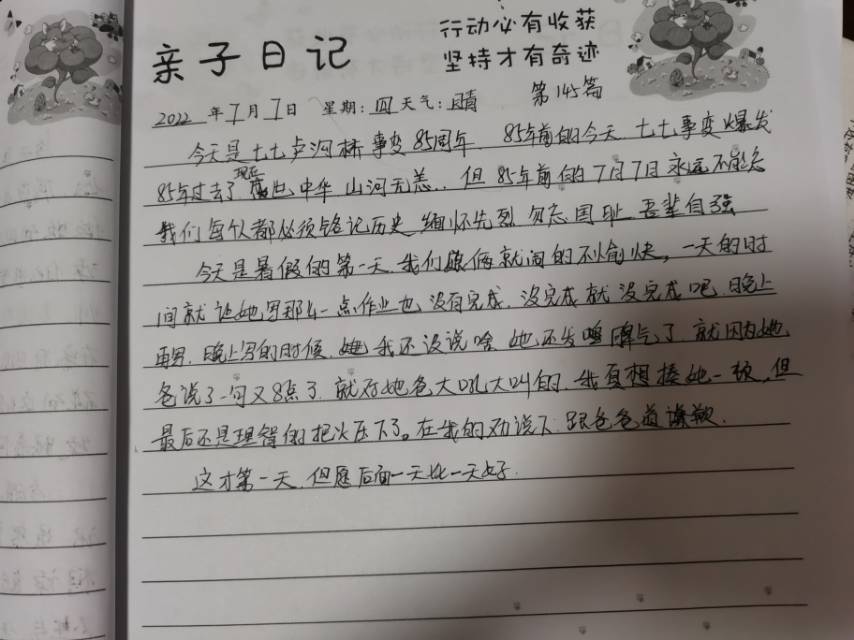 亲子日记
行动必有收获
坚持才有奇迹
第145篇
2022年7月7日 星期:四 天气:晴
今天是七七卢沟桥事变85周年. 85年前的今天七七事变爆发
85年过去了,现在 中华山河无恙.但85年前的7月7日永远不能忘
我们每个人都必须铭记历史 缅怀先烈 勿忘国耻 吾辈自强
今天是暑假的第一天,我们跟俩就闹的不愉快,一天的时
间就让她写那么一点作业也没有完成,没完成就没完成吧,晚上
再写,晚上写的时候, 我还没说啥 她还发 脾气了.就因为她
爸说了一句又8点了.就对她爸大吼大叫的,我真想揍她一顿,但
最后还是理智的把火压下了。在我的劝说下 跟爸爸道谦歉.
这才第一天,但愿后面一天比一天好.